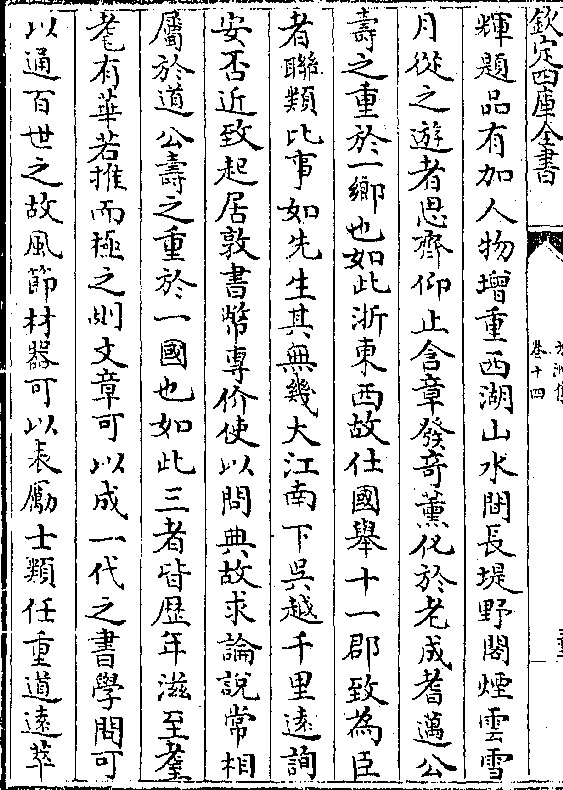 欽定四庫全書
卷十四
輝題品有加人物增重西湖山水間長堤野閣煙雲雪
月從之遊者思齊仰止含章發竒薰化於老成耆邁公
壽之重於一鄉也如此浙東西故仕國舉十一郡致為臣
者聯類比事如先生其無幾大江南下吳越千里逺詢
安否近致起居敦書幣專价使以問典故求論說常相
屬於道公壽之重於一國也如此三者皆歴年滋至耋
耄有華若推而極之則文章可以成一代之書學問可
以通百世之故風節材器可以表勵士類任重道逺萃